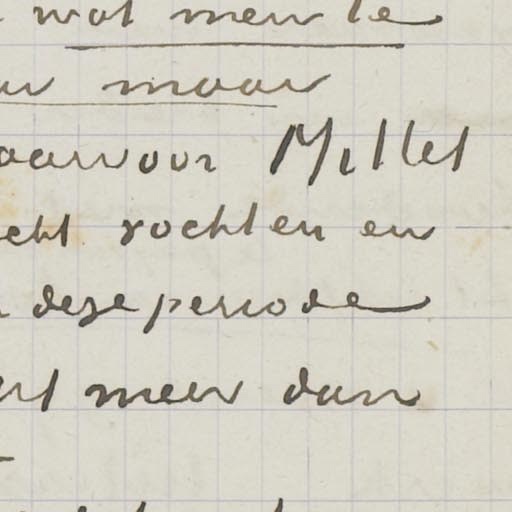 wat men te
maar
waarvoor Millet
echt vochten en
deze periode
meer dan